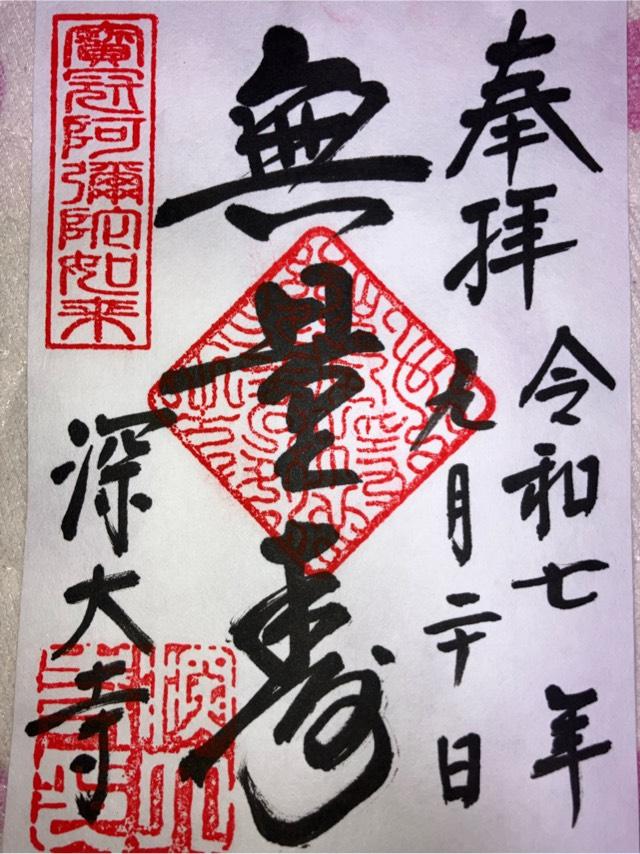 奉拝
令和七年
九月二十日
無量寿
寶冠阿彌陀如来
深大寺